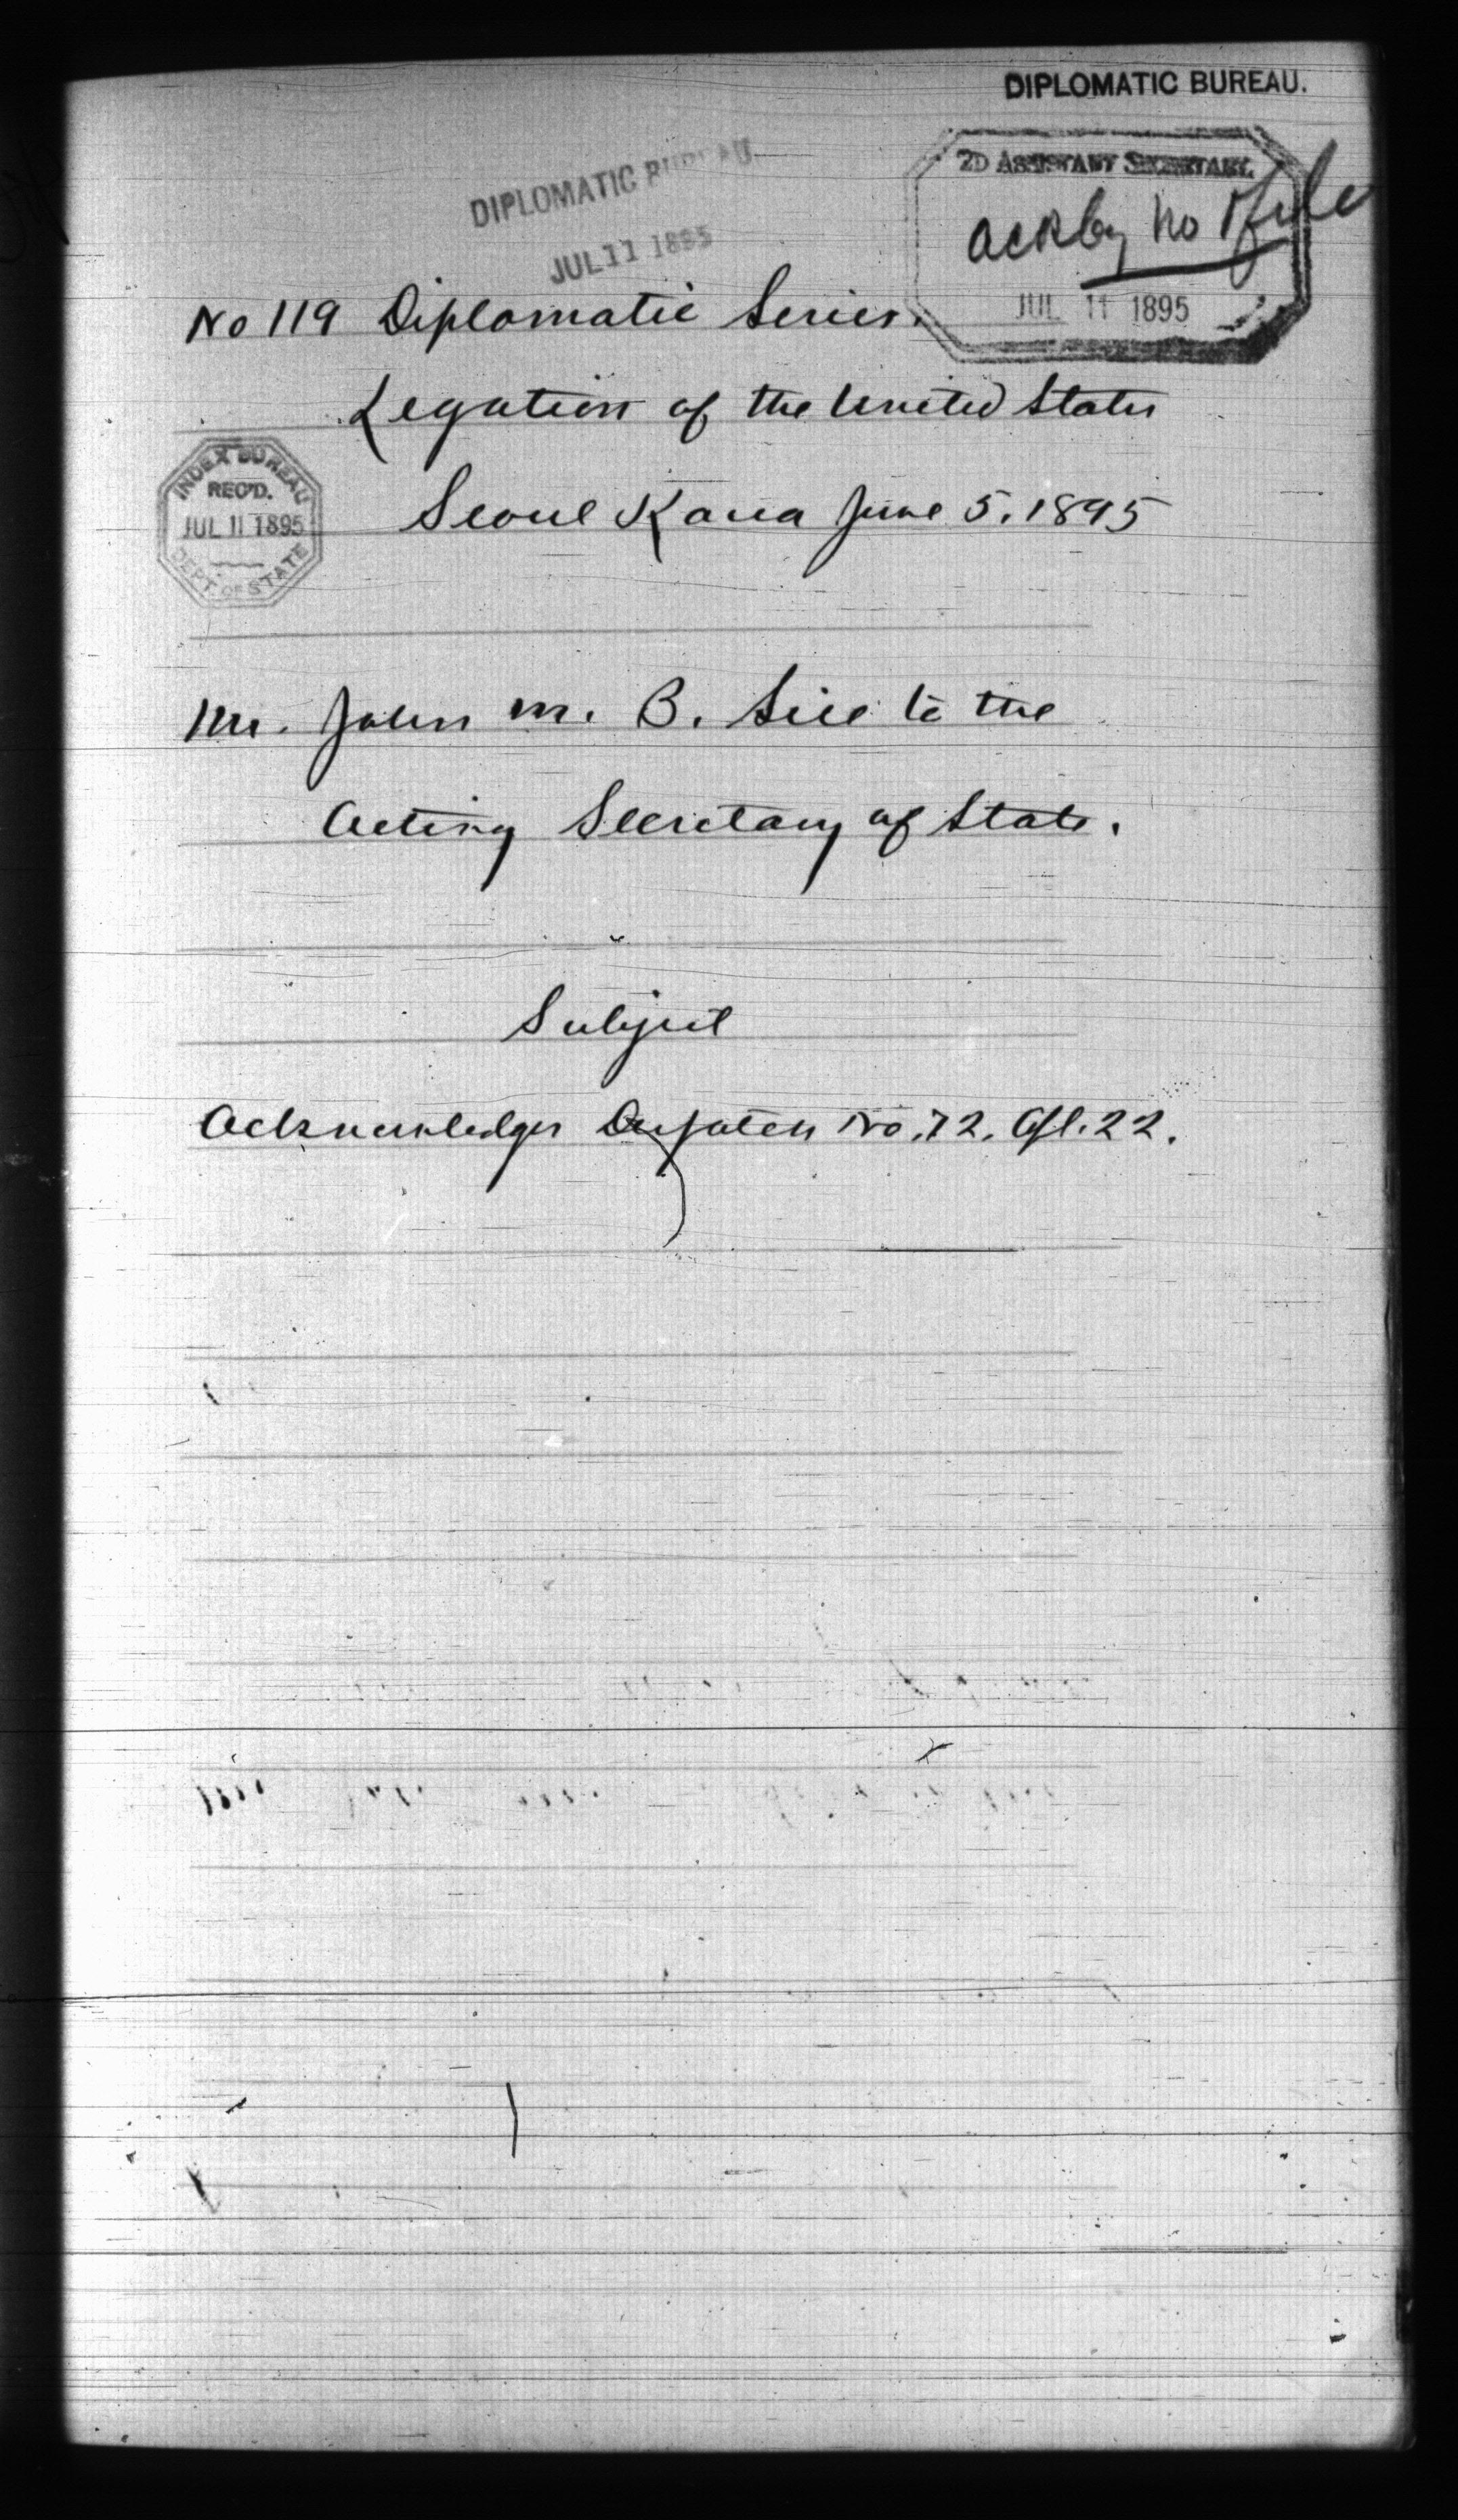 DIPLOMATIC BUREAU.
DIPLOMATIC BUREAU
JUL 11 1895
2D ASSISTANT SECRETARY.
ack by no
file
JUL 11 1895
No 119 Diplomatic Series.
Legation of the United States
INDEX BUREAU
REC'D.
JUL 11 1895
DEPT. OF STATE
Seoul Korea June 5. 1895
Mr. John M. B. Sill to the
Acting Secretary of State.
Subject
Acknowledges Despatch No. 72. Apl. 22.